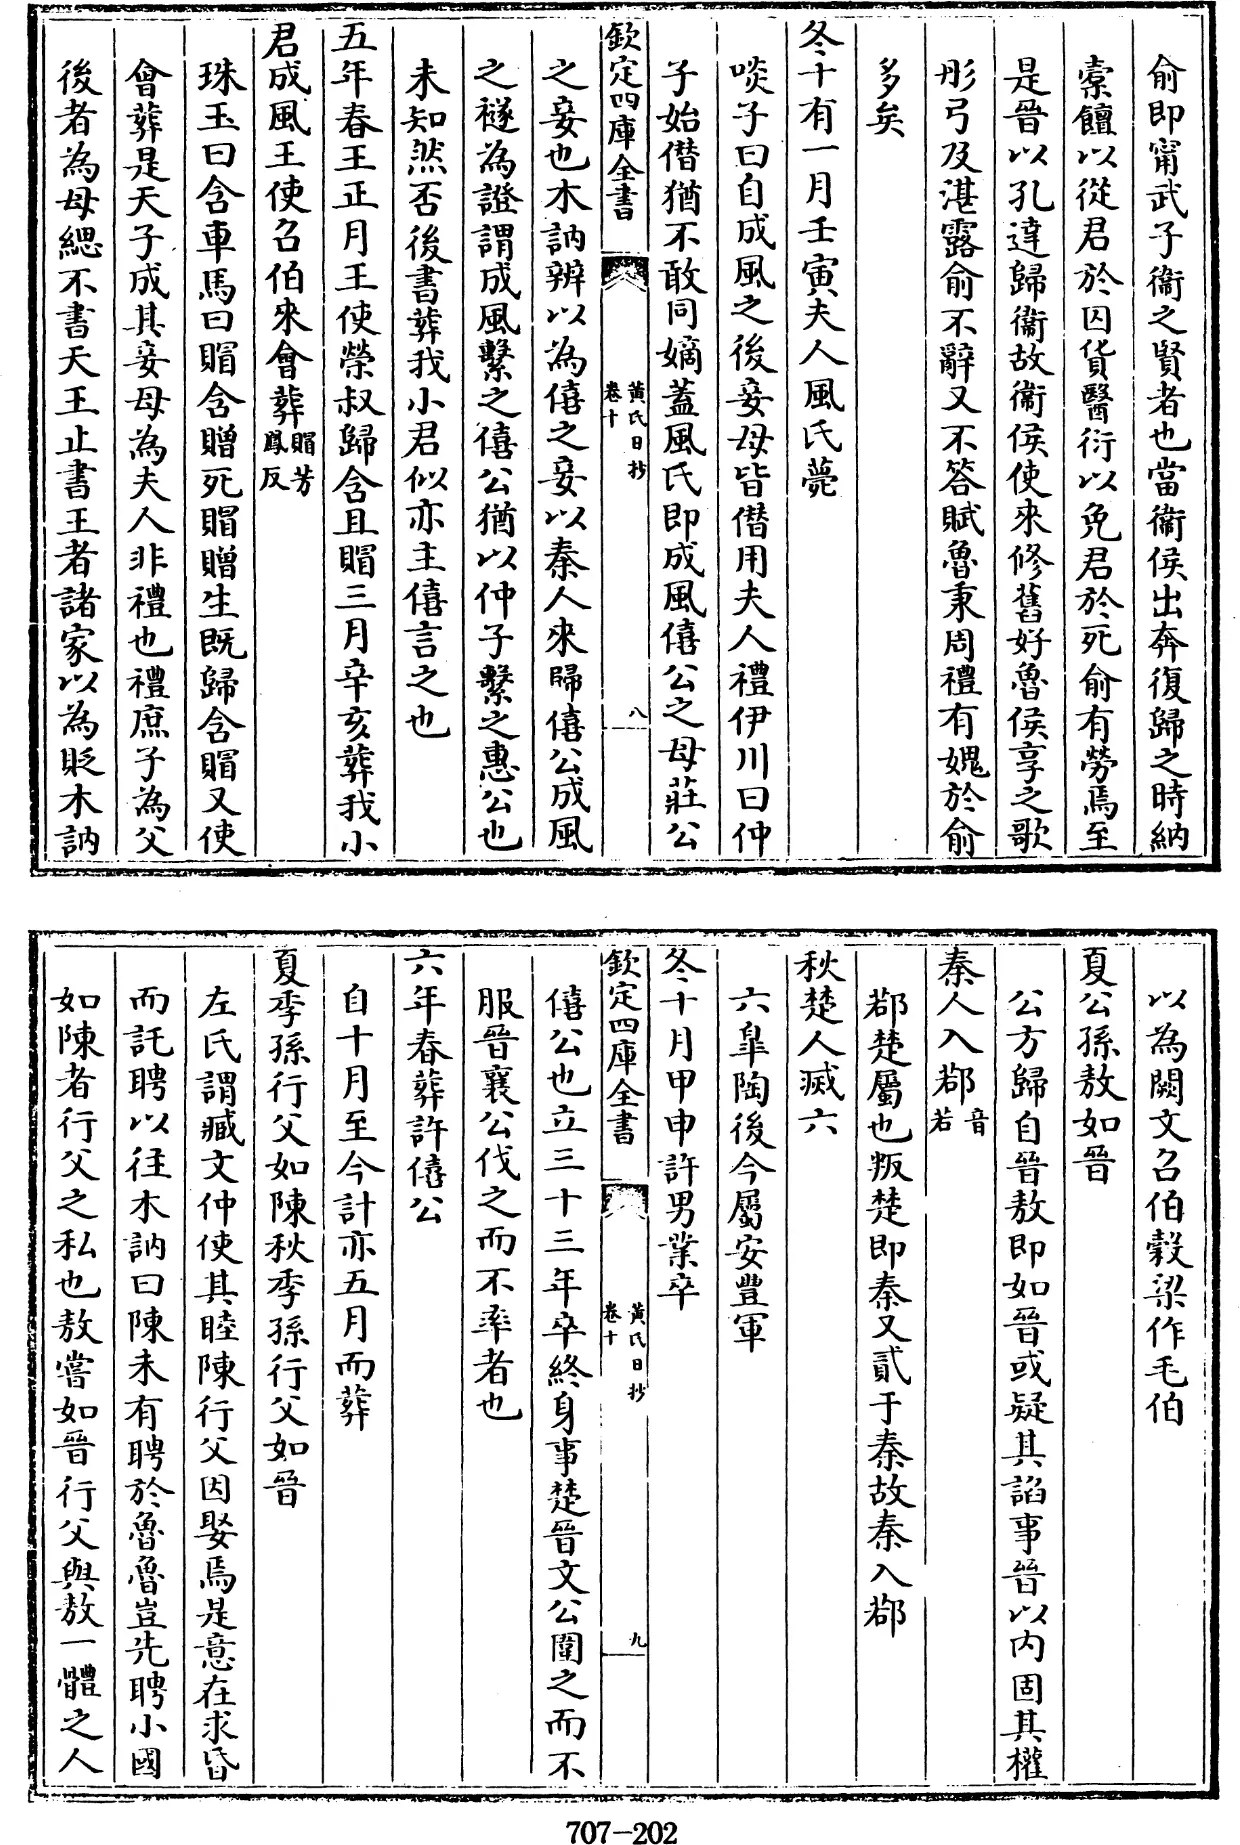 俞即甯武子衞之賢者也當衞侯出奔復歸之時納
槖饘以從君於囚貨醫衍以免君於死俞有勞焉至
是晉以孔達歸衞故衞侯使來修舊好魯侯享之歌
彤弓及湛露俞不辭又不答賦魯秉周禮有媿於俞
多矣
冬十有一月壬寅夫人風氏薨
啖子曰自成風之後妾母皆僭用夫人禮伊川曰仲
子始僭猶不敢同嫡蓋風氏即成風僖公之母莊公
欽定四庫全書
黃氏日抄
卷十
八
之妾也木訥辨以為僖之妾以秦人來歸僖公成風
之襚為證謂成風繫之僖公猶以仲子繫之惠公也
未知然否後書葬我小君似亦主僖言之也
五年春王正月王使榮叔歸含且賵三月辛亥葬我小
君成風王使召伯來會葬賵芳鳳反
珠玉曰含車馬曰賵含贈死賵贈生既歸含賵又使
會葬是天子成其妾母為夫人非禮也禮庶子為父
後者為母緦不書天王止書王者諸家以為貶木訥
以為闕文召伯穀梁作毛伯
夏公孫敖如晉
公方歸自晉敖即如晉或疑其諂事晉以内固其權
秦人入鄀音若
鄀楚屬也叛楚即秦又貳于秦故秦入鄀
秋楚人滅六
六臯陶後今屬安豐軍
冬十月甲申許男業卒
欽定四庫全書
黃氏日抄
卷十
九
僖公也立三十三年卒終身事楚晉文公圍之而不
服晉襄公伐之而不率者也
六年春葬許僖公
自十月至今計亦五月而葬
夏季孫行父如陳秋季孫行父如晉
左氏謂臧文仲使其睦陳行父因娶焉是意在求昏
而託聘以往木訥曰陳未有聘於魯魯豈先聘小國
如陳者行父之私也敖嘗如晉行父與敖一體之人
707-202